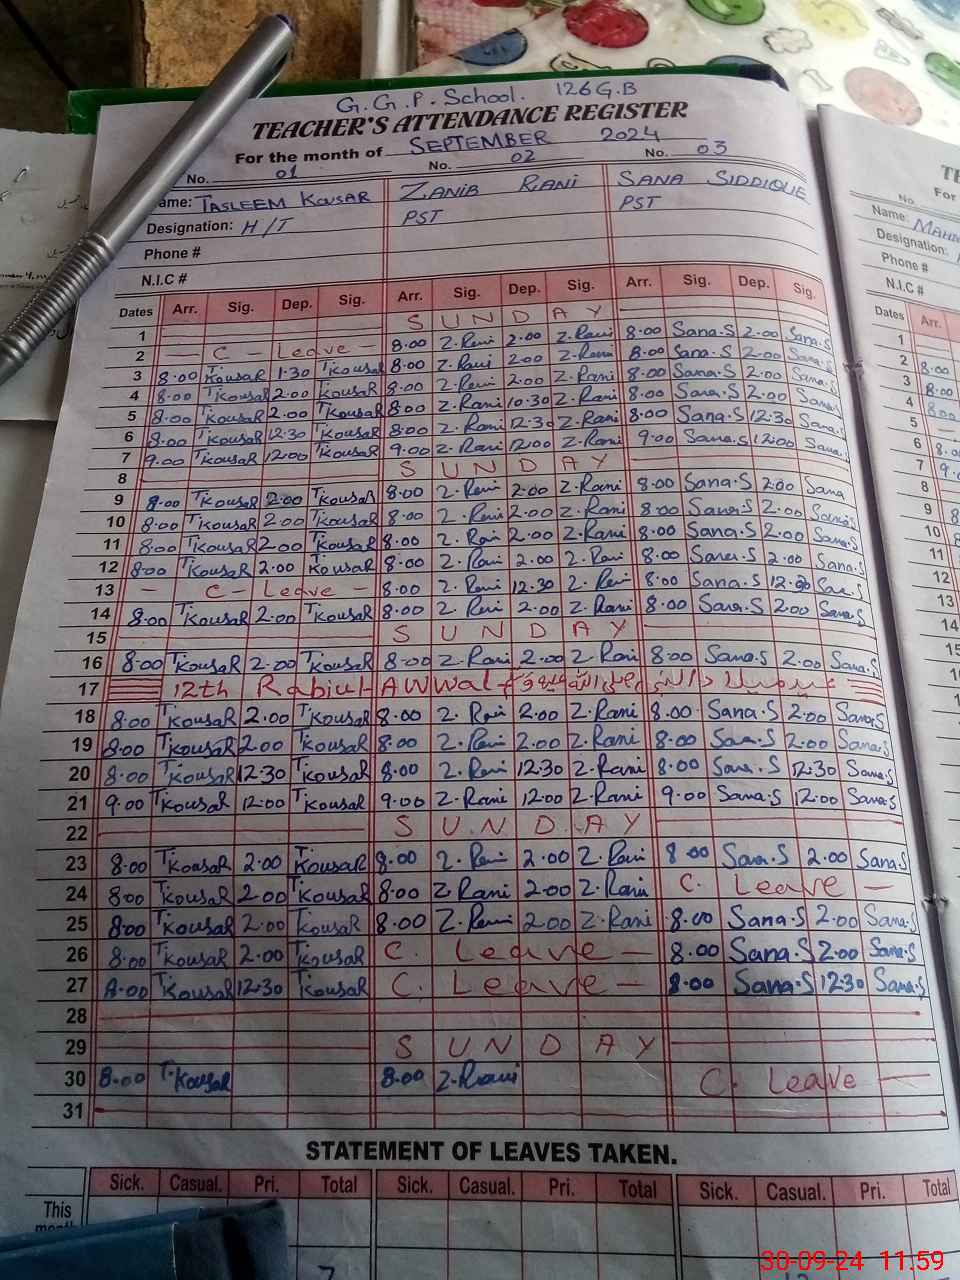 G.G.P. School. 126 G.B
TEACHER'S ATTENDANCE REGISTER
For the month of SEPTEMBER 2024
No. 01 No. 02 No. 03
ame: TASLEEM KOUSAR ZANIB RANI SANA SIDDIQUE
Designation: H/T PST PST
Phone #
N.I.C #
Dates Arr. Sig. Dep. Sig. Arr. Sig. Dep. Sig. Arr. Sig. Dep. Sig.
1 SUNDAY
2 — C - Leave - 8.00 Z.Rani 2.00 Z.Rani 8.00 Sana.S 2.00 Sana.S
3 8.00 T.Kousar 1.30 T.Kousar 8.00 Z.Rani 2.00 Z.Rani 8.00 Sana.S 2.00 Sana.S
4 8.00 T.KousaR 2.00 T.KousaR 8.00 Z.Rani 2.00 Z.Rani 8.00 Sana.S 2.00 Sana.S
5 8.00 T.KousaR 2.00 T.KousaR 8.00 Z.Rani 10.30 Z.Rani 8.00 Sana.S 2.00 Sana.S
6 8.00 T.KousaR 12.30 T.KousaR 8.00 Z.Rani 12.30 Z.Rani 8.00 Sana.S 12.30 Sana.S
7 9.00 T.KousaR 12.00 T.KousaR 9.00 Z.Rani 12.00 Z.Rani 9.00 Sana.S 12.00 Sana.S
8 SUNDAY
9 8.00 T.KousaR 2.00 T.KousaR 8.00 Z.Rani 2.00 Z.Rani 8.00 Sana.S 2.00 Sana
10 8.00 T.KousaR 2.00 T.KousaR 8.00 Z.Rani 2.00 Z.Rani 8.00 Sana.S 2.00 Sana.S
11 8.00 T.KousaR 2.00 T.KousaR 8.00 Z.Rani 2.00 Z.Rani 8.00 Sana.S 2.00 Sana.S
12 8.00 T.KousaR 2.00 T.KousaR 8.00 Z.Rani 2.00 Z.Rani 8.00 Sana.S 2.00 Sana.S
13 — C - Leave - 8.00 Z.Rani 12.30 Z.Rani 8.00 Sana.S 12.30 Sana.S
14 8.00 T.KousaR 2.00 T.KousaR 8.00 Z.Rani 2.00 Z.Rani 8.00 Sana.S 2.00 Sana.S
15 SUNDAY
16 8.00 T.KousaR 2.00 T.KousaR 8.00 Z.Rani 2.00 Z.Rani 8.00 Sana.S 2.00 Sana.S
17 12th Rabiul-AWWal - عید میلاد النبی صلی اللہ علیہ وسلم
18 8.00 T.KousaR 2.00 T.KousaR 8.00 Z.Rani 2.00 Z.Rani 8.00 Sana.S 2.00 Sana.S
19 8.00 T.KousaR 2.00 T.KousaR 8.00 Z.Rani 2.00 Z.Rani 8.00 Sana.S 2.00 Sana.S
20 8.00 T.KousaR 12.30 T.KousaR 8.00 Z.Rani 12.30 Z.Rani 8.00 Sana.S 12.30 Sana.S
21 9.00 T.KousaR 12.00 T.KousaR 9.00 Z.Rani 12.00 Z.Rani 9.00 Sana.S 12.00 Sana.S
22 SUNDAY
23 8.00 T.KousaR 2.00 T.KousaR 8.00 Z.Rani 2.00 Z.Rani 8.00 Sana.S 2.00 Sana.S
24 8.00 T.KousaR 2.00 T.KousaR 8.00 Z.Rani 2.00 Z.Rani C. Leave —
25 8.00 T.KousaR 2.00 T.KousaR 8.00 Z.Rani 2.00 Z.Rani 8.00 Sana.S 2.00 Sana.S
26 8.00 T.KousaR 2.00 T.KousaR C. Leave — 8.00 Sana.S 2.00 Sana.S
27 8.00 T.KousaR 12.30 T.KousaR C. Leave — 8.00 Sana.S 12.30 Sana.S
28
29 SUNDAY
30 8.00 T.KousaR 8.00 Z.Rani C. Leave —
31
STATEMENT OF LEAVES TAKEN.
Sick. Casual. Pri. Total Sick. Casual. Pri. Total Sick. Casual. Pri. Total
This
month
For
No.
Name: MAHN
Designation:
Phone #
N.I.C #
Dates Arr.
1
2 8.00
3 8.00
4 8.00
5 —
6 8.00
7 9.0
8
9 8
10 8
11
12
13
14
30-09-24 11.59